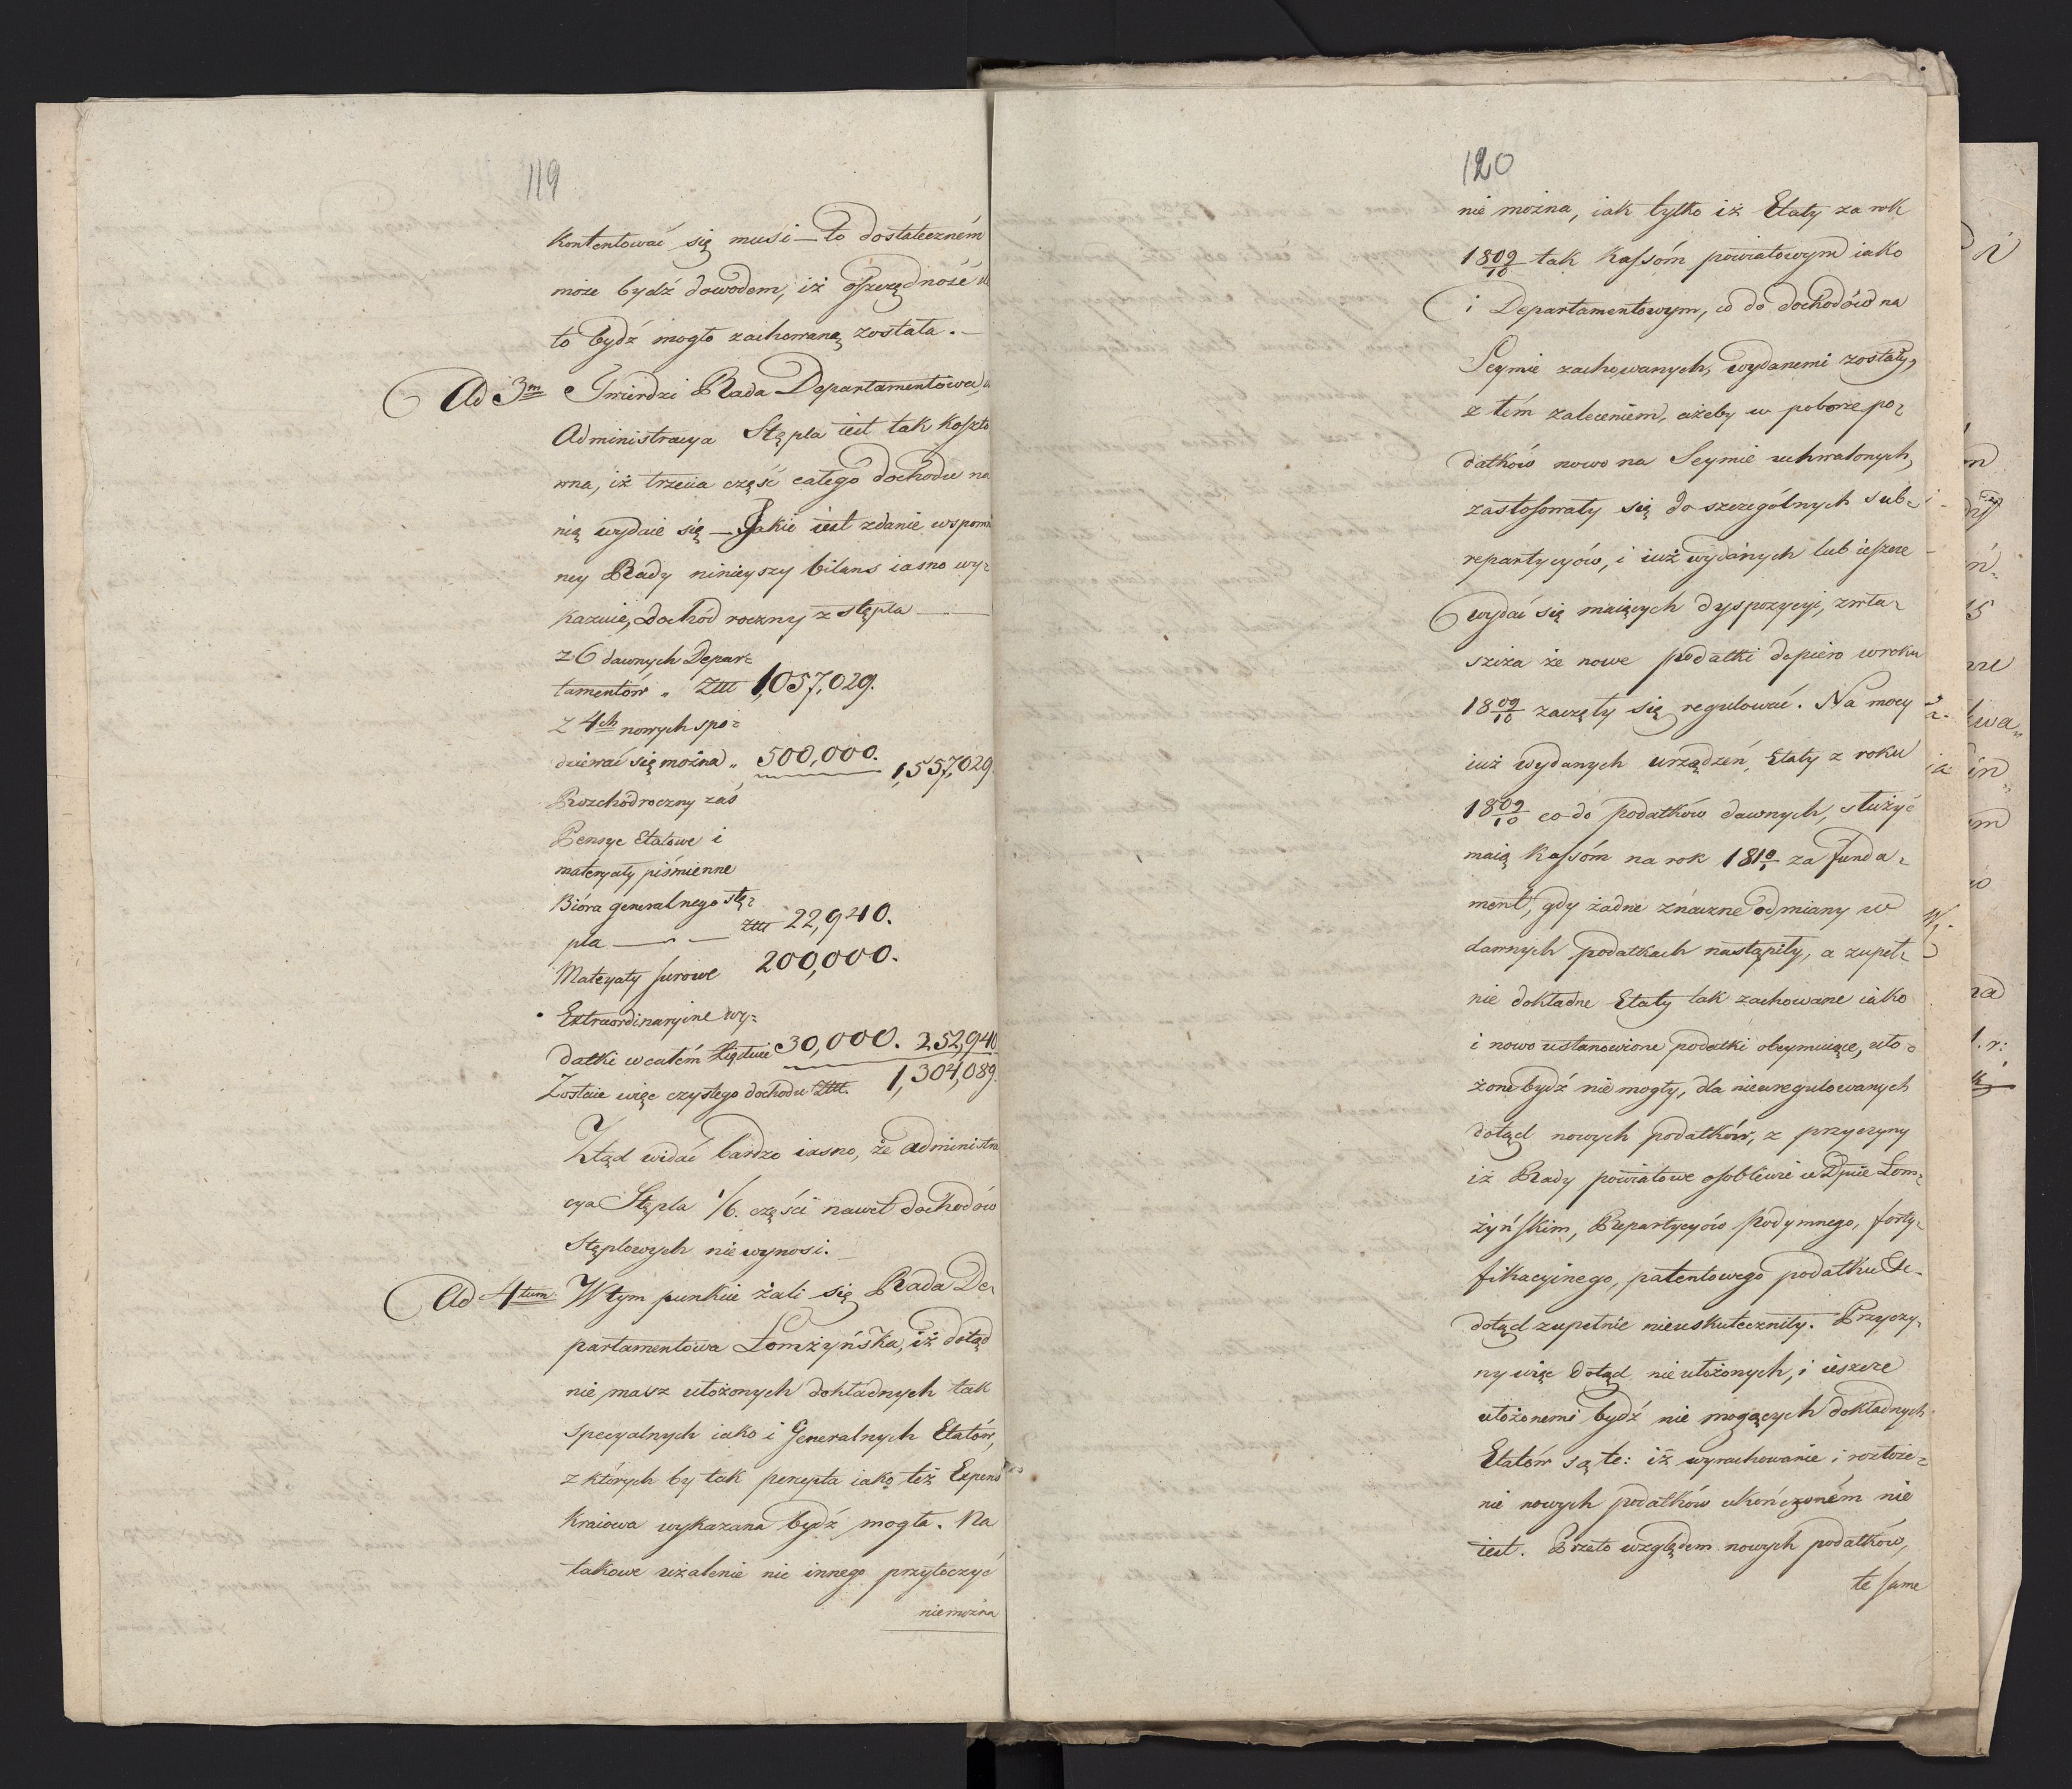 119
kontentować się musi — to dostateczném
może bydź dowodem, iż oszczędność
to bydź mogło zachowaną została. —
Ad 3m Twierdzi Rada Departamentowa,
Administracya Stępla iest tak koszto
wna, iż trzecia część całego dochodu na
nią wydaie się — Jakie iest zdanie wspomn
ney Rady ninieyszy bilans iasno wy-
kazuie, dochód roczny z stępla —
z 6 dawnych Depar-
tamentów „ Złł 1,057,029.
z 4ch nowych spo-
dziewać się można „ 500,000. 1,557,029.
Rozchód roczny zaś
Pensye Etatowe i
materyały piśmienne
Bióra generalnego stę-
pla — — Złł 22,940.
Materyały surowe 200,000.
Extraordinaryine wy-
datki w całém Xięstwie 30,000. 252,940
Zostaie więc czystego dochodu Złł. 1,304,089.
Ztąd widać bardzo iasno, że administra
cya Stępla 1/6. części nawet dochodów
Stęplowych nie wynosi. —
Ad 4tum. W tym punkcie żali się Rada De-
partamentowa Łomżyńska, iż dotąd
nie masz ułożonych dokładnych tak
specyalnych iako i Generalnych Etatów,
z których by tak percepta iako też Expens
kraiowa wykazana bydź mogła. Na
takowe użalenie nic innego przytoczyć
niemożna
120
nie można, iak tylko iż Etaty za rok
1809/10 tak Kassóm powiatowym iako
i Departamentowym, co do dochodów na
Seymie zachowanych, wydanemi zostały,
z tém zaleceniem, ażeby w poborze po-
datków nowo na Seymie uchwalonych,
zastosowały się do szczególnych sub-
repartycyów, i iuż wydanych lub ieszcze
wydać się maiących dyspozycyi, zwła-
szcza że nowe podatki dopiero w roku
1809/10 zaczęły się regulować. Na mocy
iuż wydanych urządzeń, Etaty z roku
1809/10 co do podatków dawnych, służyć
maią Kassóm na rok 1810/1 za funda-
ment, gdy żadne znaczne odmiany w
dawnych podatkach nastąpiły, a zupeł-
nie dokładne Etaty tak zachowane iako
i nowo ustanowione podatki obeymuiące, uło-
żone bydź nie mogły, dla nieuregulowanych
dotąd nowych podatków, z przyczyny
iż Rady powiatowe osobliwie w Dpcie Łom-
żyńskim, Repartycyów podymnego, forty-
fikacyinego, patentowego podatku &c.
dotąd zupełnie nieuskuteczniły. Przyczy-
ny więc dotąd nie ułożonych, i ieszcze
ułożonemi bydź nie mogących dokładnych
Etatów są te: iż wyrachowanie i rozłoże-
nie nowych podatków ukończoném nie
iest. Przeto względem nowych podatków,
te same